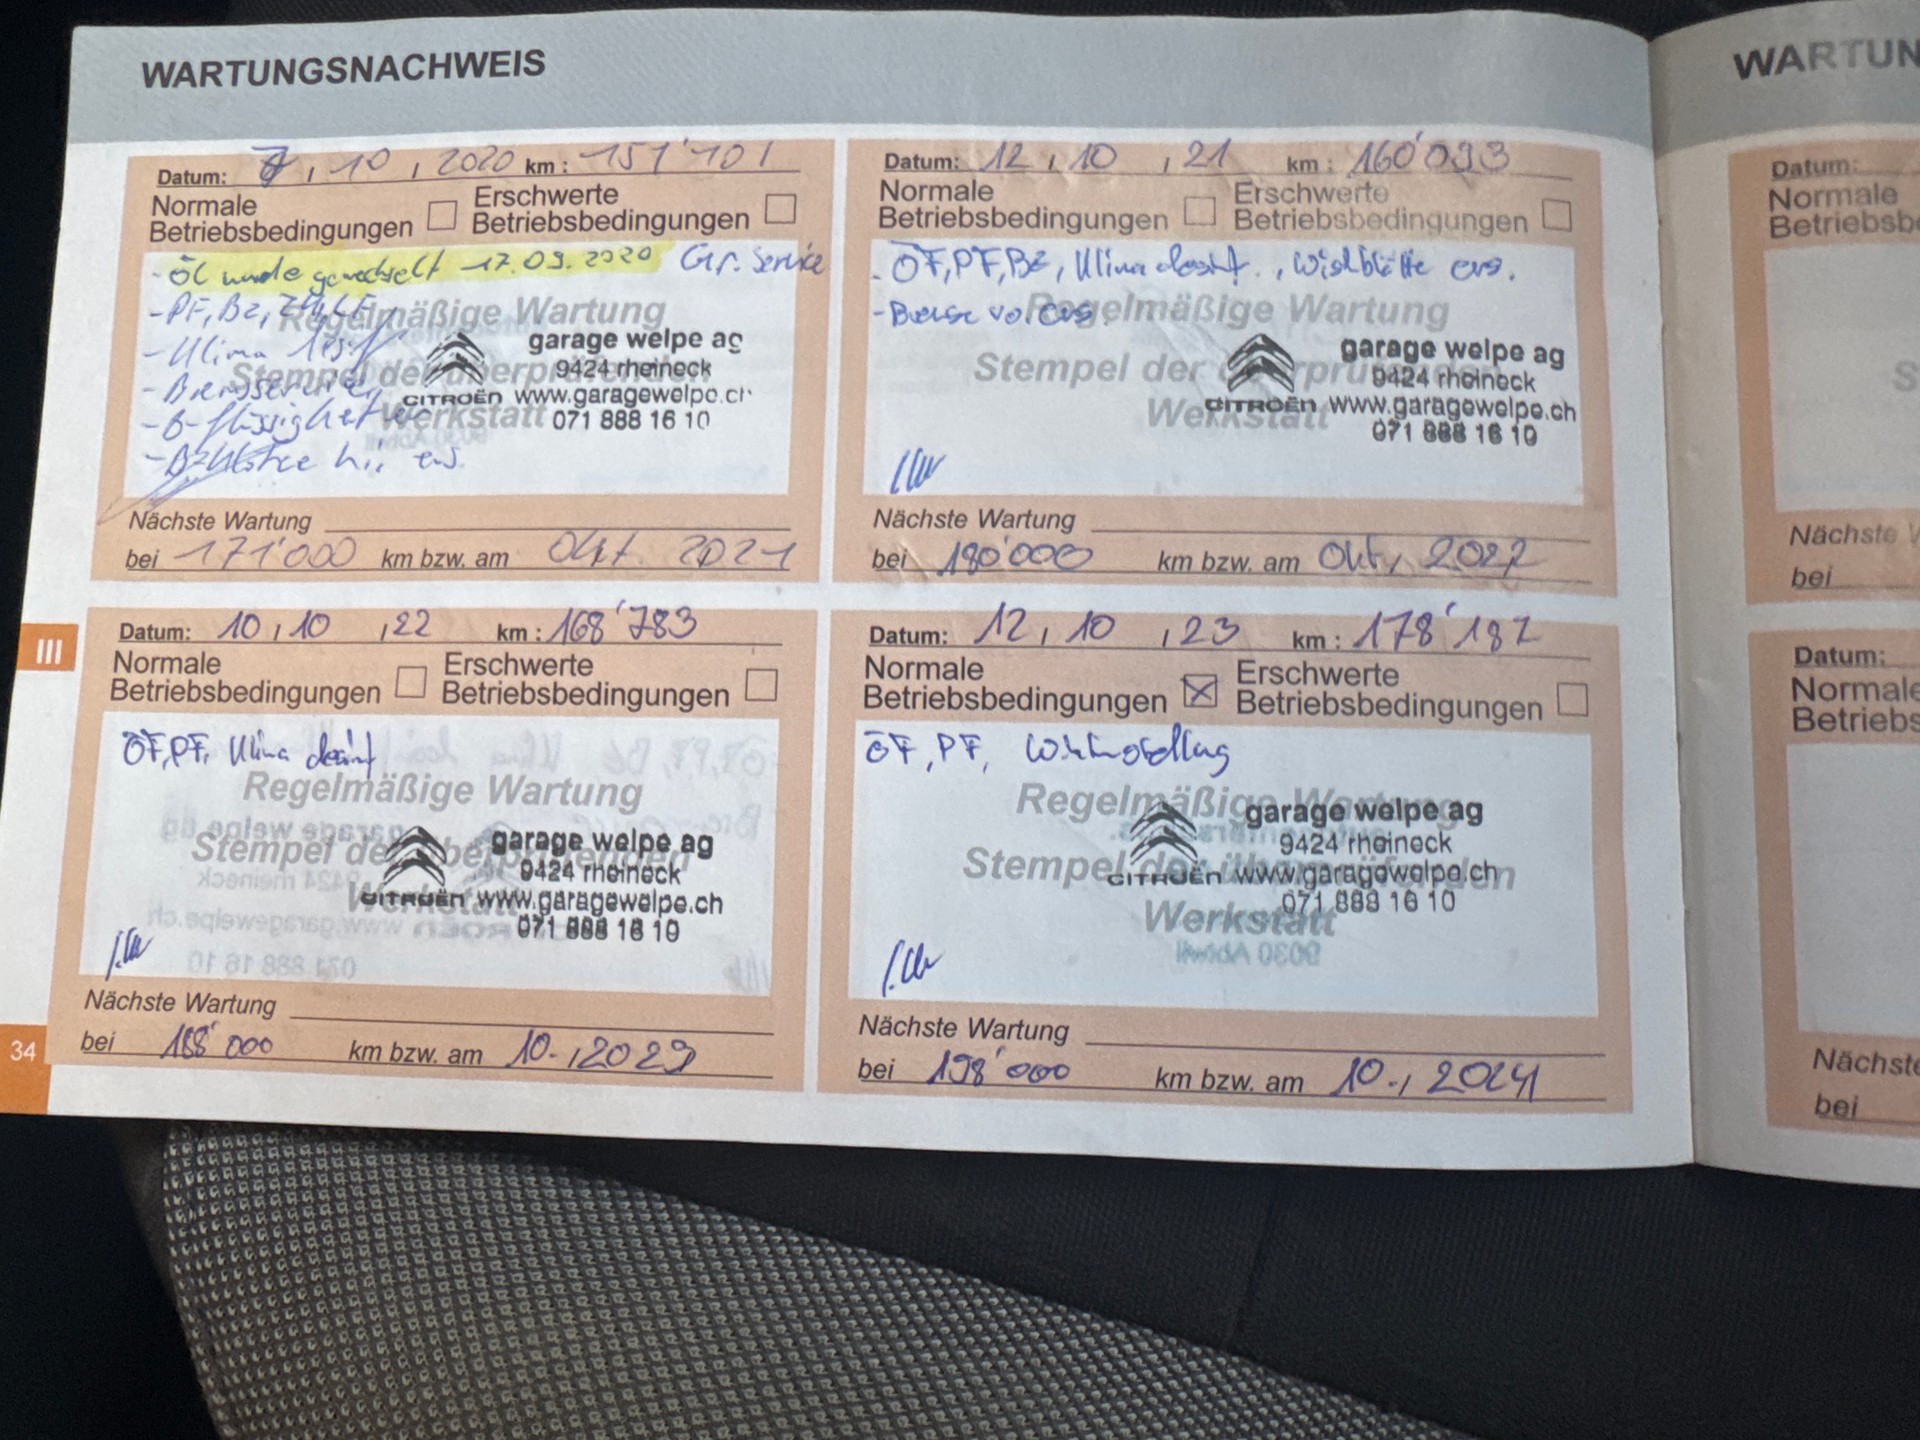 WARTUNGSNACHWEIS
Datum: 7, 10, 2020 km: 151'101
Normale
Betriebsbedingungen
Erschwerte
Betriebsbedingungen
- Öl wurde gewechselt 17.09.2020 Gr. Service
- PF, BZ,
- Klima
- Bremsservice
- B-flüssigkeit
Regelmäßige Wartung
Stempel der überprüfenden
Werkstatt
garage welpe ag
9424 rheineck
CITROËN www.garagewelpe.ch
071 888 16 10
Nächste Wartung
bei 171'000 km bzw. am Okt. 2021
Datum: 12, 10, 21 km: 160'093
Normale
Betriebsbedingungen
Erschwerte
Betriebsbedingungen
- ÖF, PF, BZ, Klima desinf., Wischblätter ers.
- Bremse vo. ers.
Regelmäßige Wartung
Stempel der überprüfenden
Werkstatt
garage welpe ag
9424 rheineck
CITROËN www.garagewelpe.ch
071 888 16 10
Nächste Wartung
bei 180'000 km bzw. am Okt, 2022
III
Datum: 10, 10, 22 km: 168'783
Normale
Betriebsbedingungen
Erschwerte
Betriebsbedingungen
ÖF, PF, Klima desinf
Regelmäßige Wartung
Stempel der überprüfenden
Werkstatt
garage welpe ag
9424 rheineck
CITROËN www.garagewelpe.ch
071 888 16 10
Nächste Wartung
bei 188'000 km bzw. am 10., 2023
Datum: 12, 10, 23 km: 178'187
Normale
Betriebsbedingungen
Erschwerte
Betriebsbedingungen
ÖF, PF,
Regelmäßige Wartung
Stempel der überprüfenden
Werkstatt
garage welpe ag
9424 rheineck
CITROËN www.garagewelpe.ch
071 888 16 10
Nächste Wartung
bei 198'000 km bzw. am 10., 2024
34
WARTUN
Datum:
Normale
Betriebsb
S
Nächste W
bei
Datum:
Normale
Betriebs
Nächste
bei